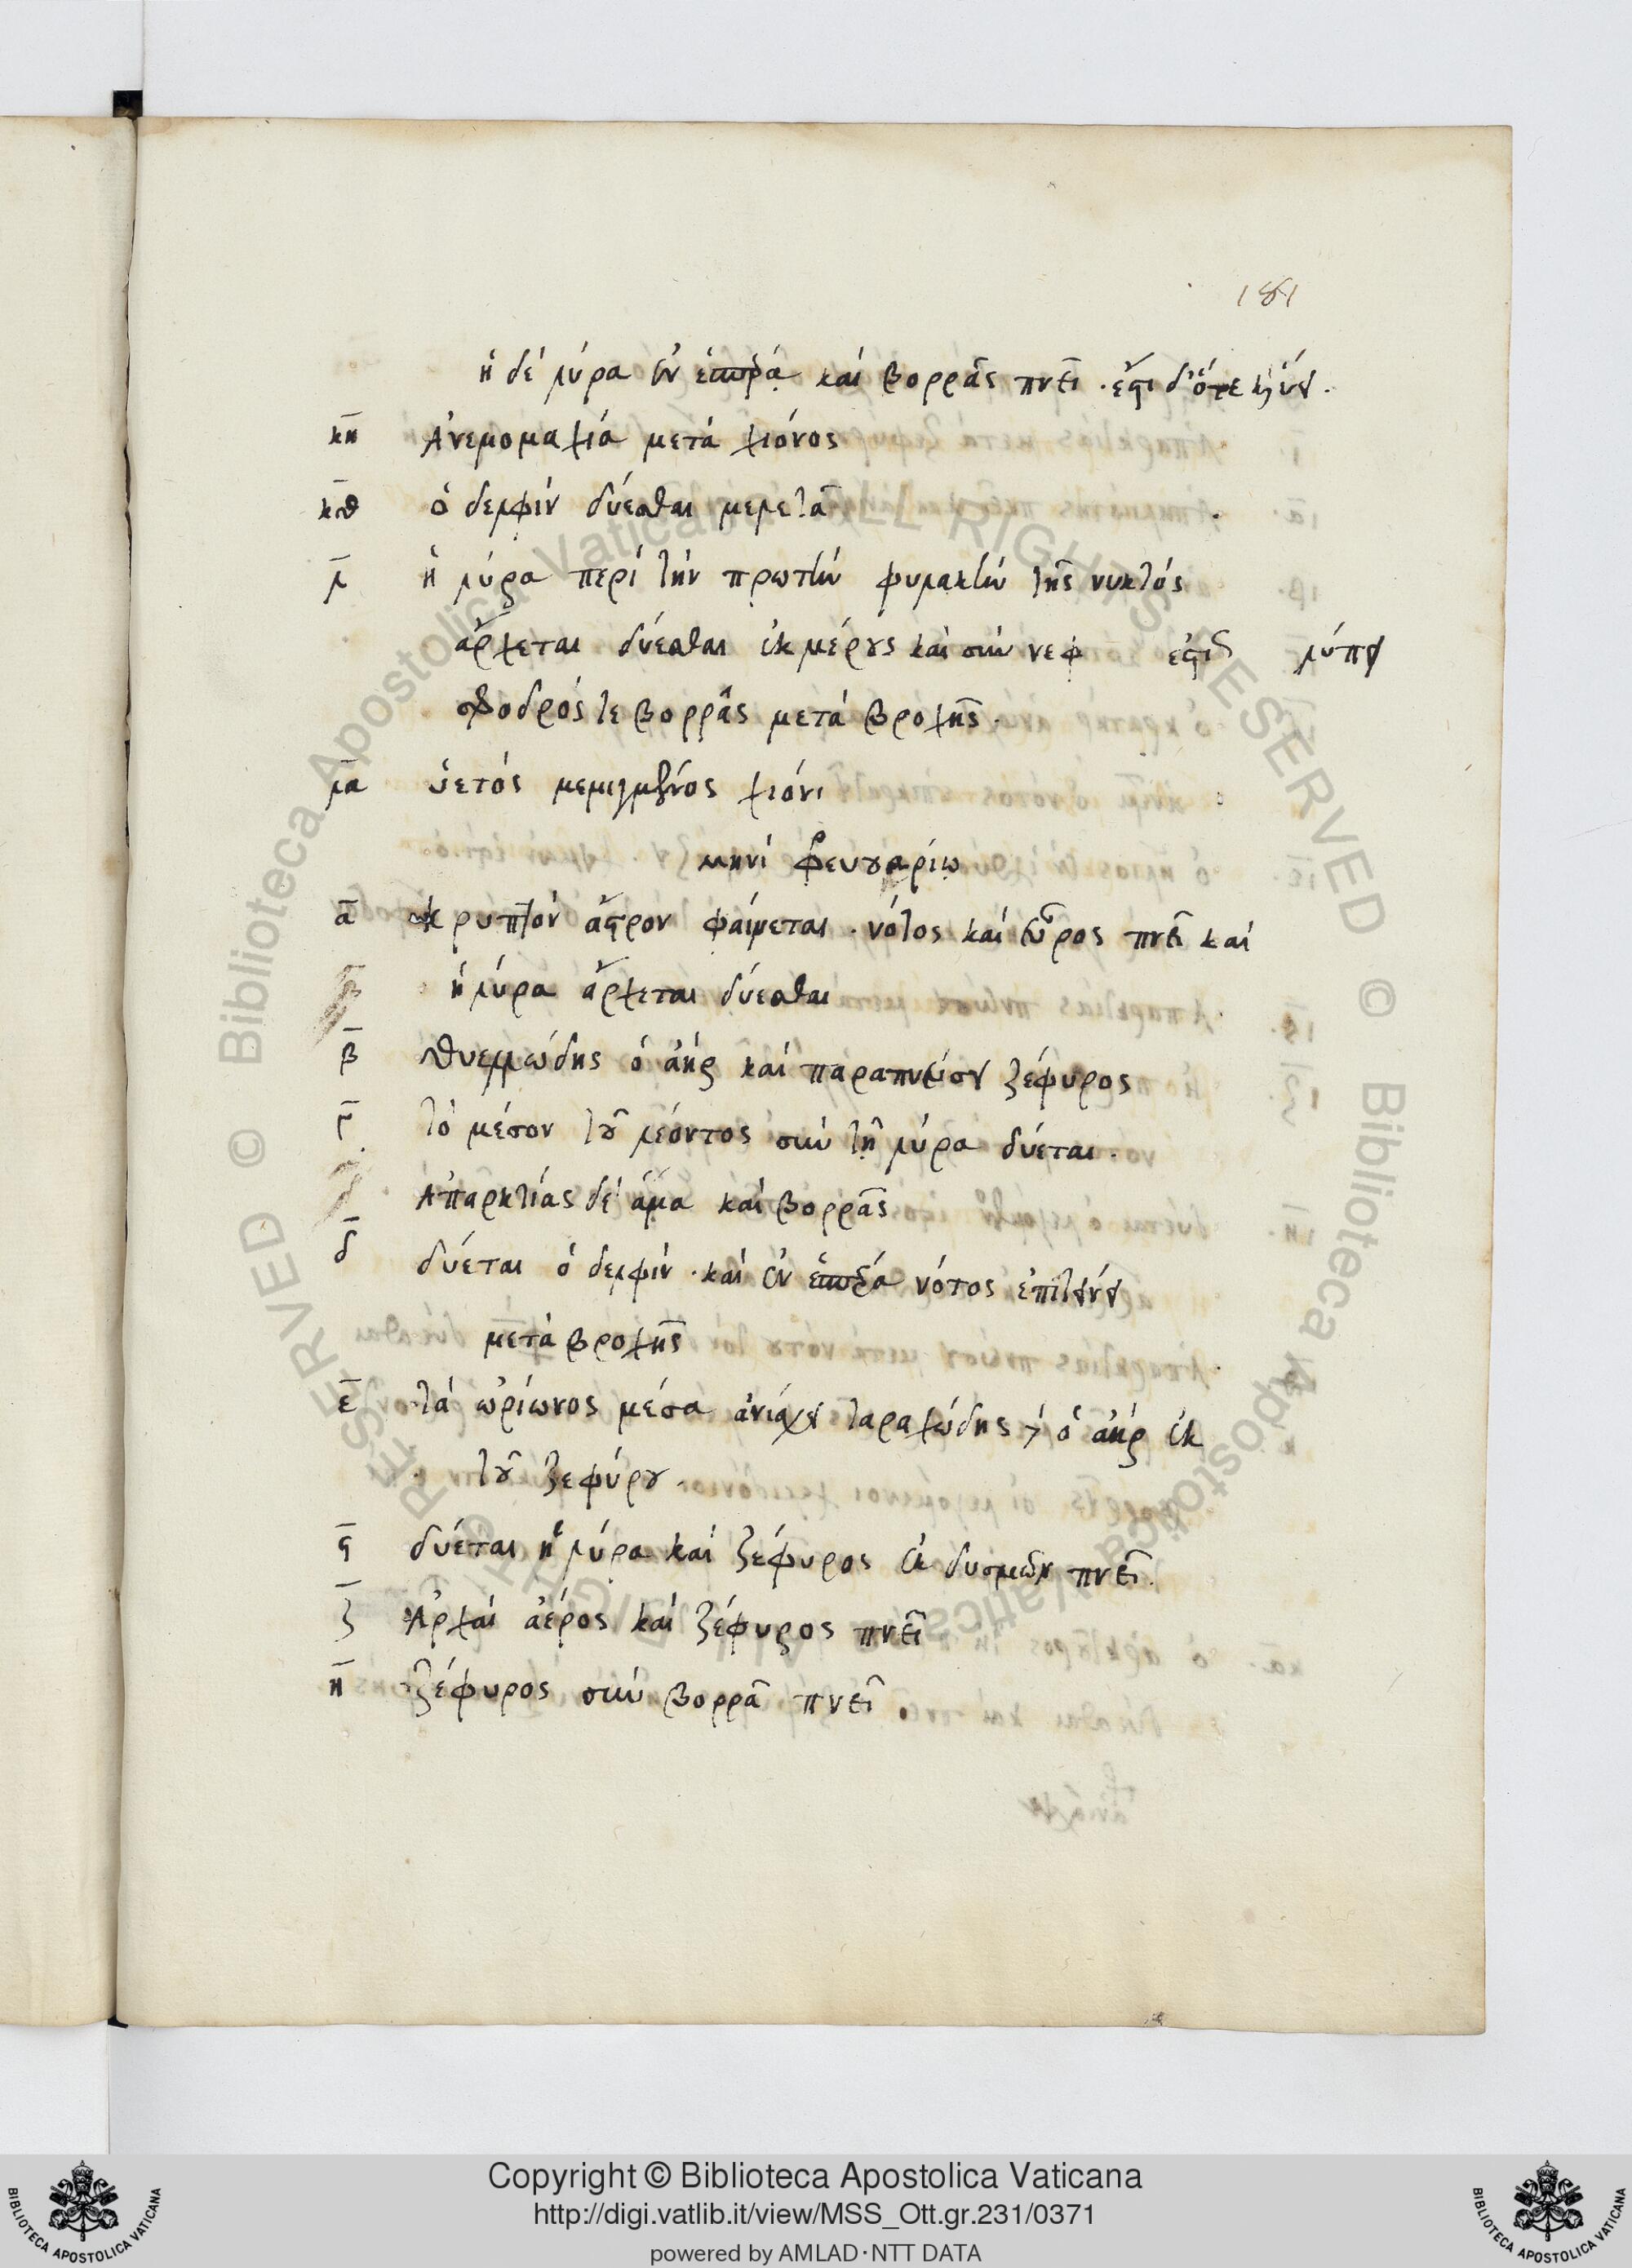 181
ἡ δὲ λύρα ἐν ἑσπέρᾳ καὶ βορρᾶς πνεῖ · ἔστι δ' ὅτε καὶ ὕει ·
κη ἀνεμομαχία μετὰ χιόνος
κθ ὁ δελφὶν δύεσθαι μελετᾷ
λ ἡ λύρα περὶ τὴν πρώτην φυλακὴν τῆς νυκτός
ἄρχεται δύεσθαι ἐκ μέρους καὶ σὺν νεφ λύπει
σφοδρός τε βορρᾶς μετὰ βροχῆς ·
λα ὑετὸς μεμιγμένος χιόνι
μηνὶ φευρουαρίῳ
α κρυπτὸν ἄστρον φαίνεται · νότος καὶ εὖρος πνεῖ καὶ
ἡ λύρα ἄρχεται δύεσθαι
β ὁ ἀὴρ καὶ παραπνεύσει ζέφυρος
γ τὸ μέσον τοῦ λέοντος σὺν τῇ λύρᾳ δύεται ·
ἀπαρκτίας δὲ ἅμα καὶ βορρᾶς
δ δύεται ὁ δελφίν · καὶ ἐν ἑσπέρᾳ νότος ἐπιτείνει
μετὰ βροχῆς
ε τὰ ὠρίωνος μέσα ἀνίσχει ταραχώδης ὁ ἀὴρ ἐκ
τοῦ ζεφύρου ·
ϛ δύεται ἡ λύρα καὶ ζέφυρος ἐκ δυσμῶν πνεῖ ·
ζ ἀρχαὶ ἀέρος καὶ ζέφυρος πνεῖ
η ζέφυρος σὺν βορρᾷ πνεῖ
Copyright © Biblioteca Apostolica Vaticana
http://digi.vatlib.it/view/MSS_Ott.gr.231/0371
powered by AMLAD·NTT DATA
BIBLIOTECA APOSTOLICA VATICANA
BIBLIOTECA APOSTOLICA VATICANA